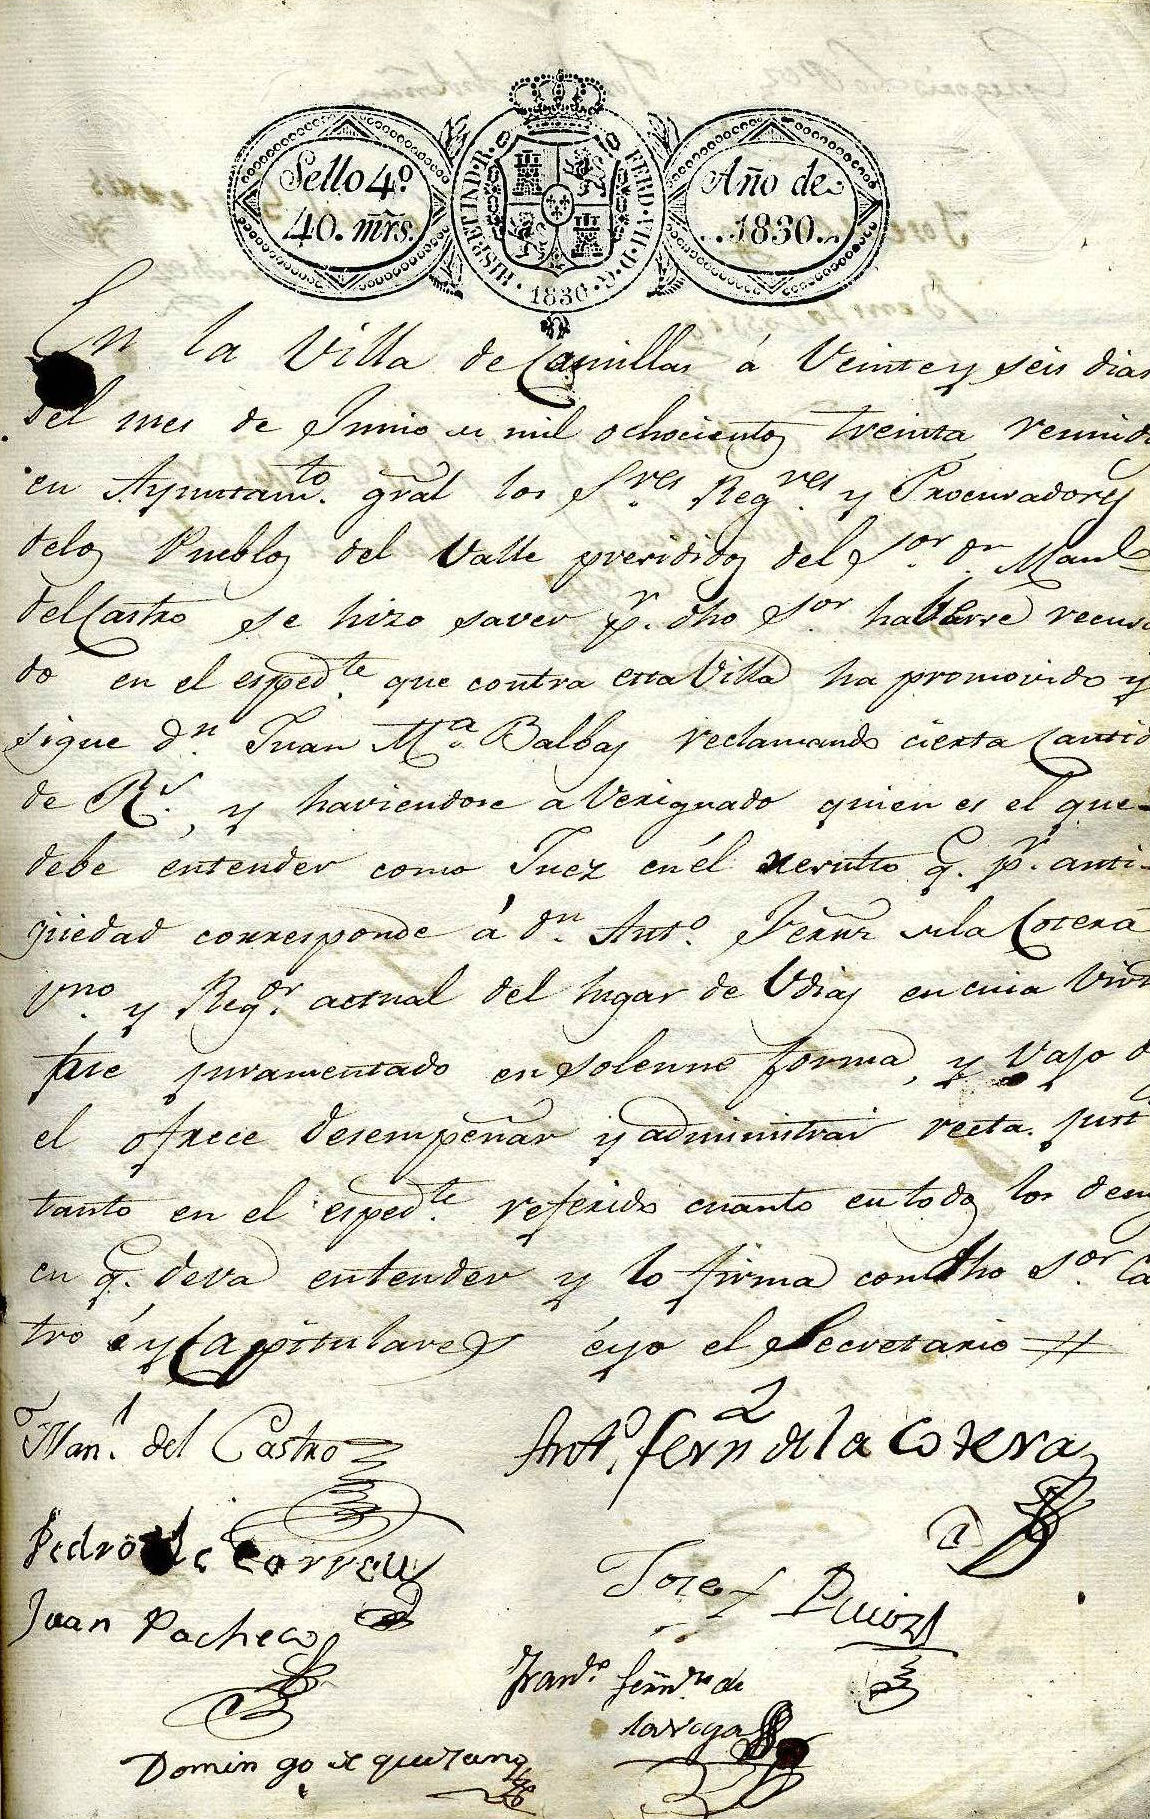 Sello 4º
40. mrs.
HISP. ET IND. R. FERD. VII. D. G. 1830.
Año de
1830.
En la Villa de Canillas á Veinte y seis dias
del mes de Junio de mil ochocientos treinta reunido
en Ayuntamto. gral los Sres. Regres. y Procuradores
delos Pueblos del Valle presididos del Sor. dn. Manl
del Castro se hizo saver pr. dho Sor haberse recusa
do en el espedte. que contra esta Villa ha promovido y
sigue dn. Juan Ma. Balbas reclamando cierta Cantid
de Rs. y haviendose aberiguado quien es el que
debe entender como Juez en él resulto q. pr. anti-
güedad corresponde á dn. Anto. Fernz de la Cotera
vno. y Regor. actual del lugar de Udias en cuia Virt
fue juramentado en solemne forma, y vajo d
el ofrece desempeñar y administrar recta Just
tanto en el espedte. referido cuanto en todos los dem
en q. deva entender y lo firma con dho Sor. Ca
tro y Capitulares é yo el Secretario
Manl. del Castro
Anto. fern de la Cotera
Pedro de
Juan Pacheco
Josef Ruiz
Frando. fernz de
la vega
Domingo de quixano